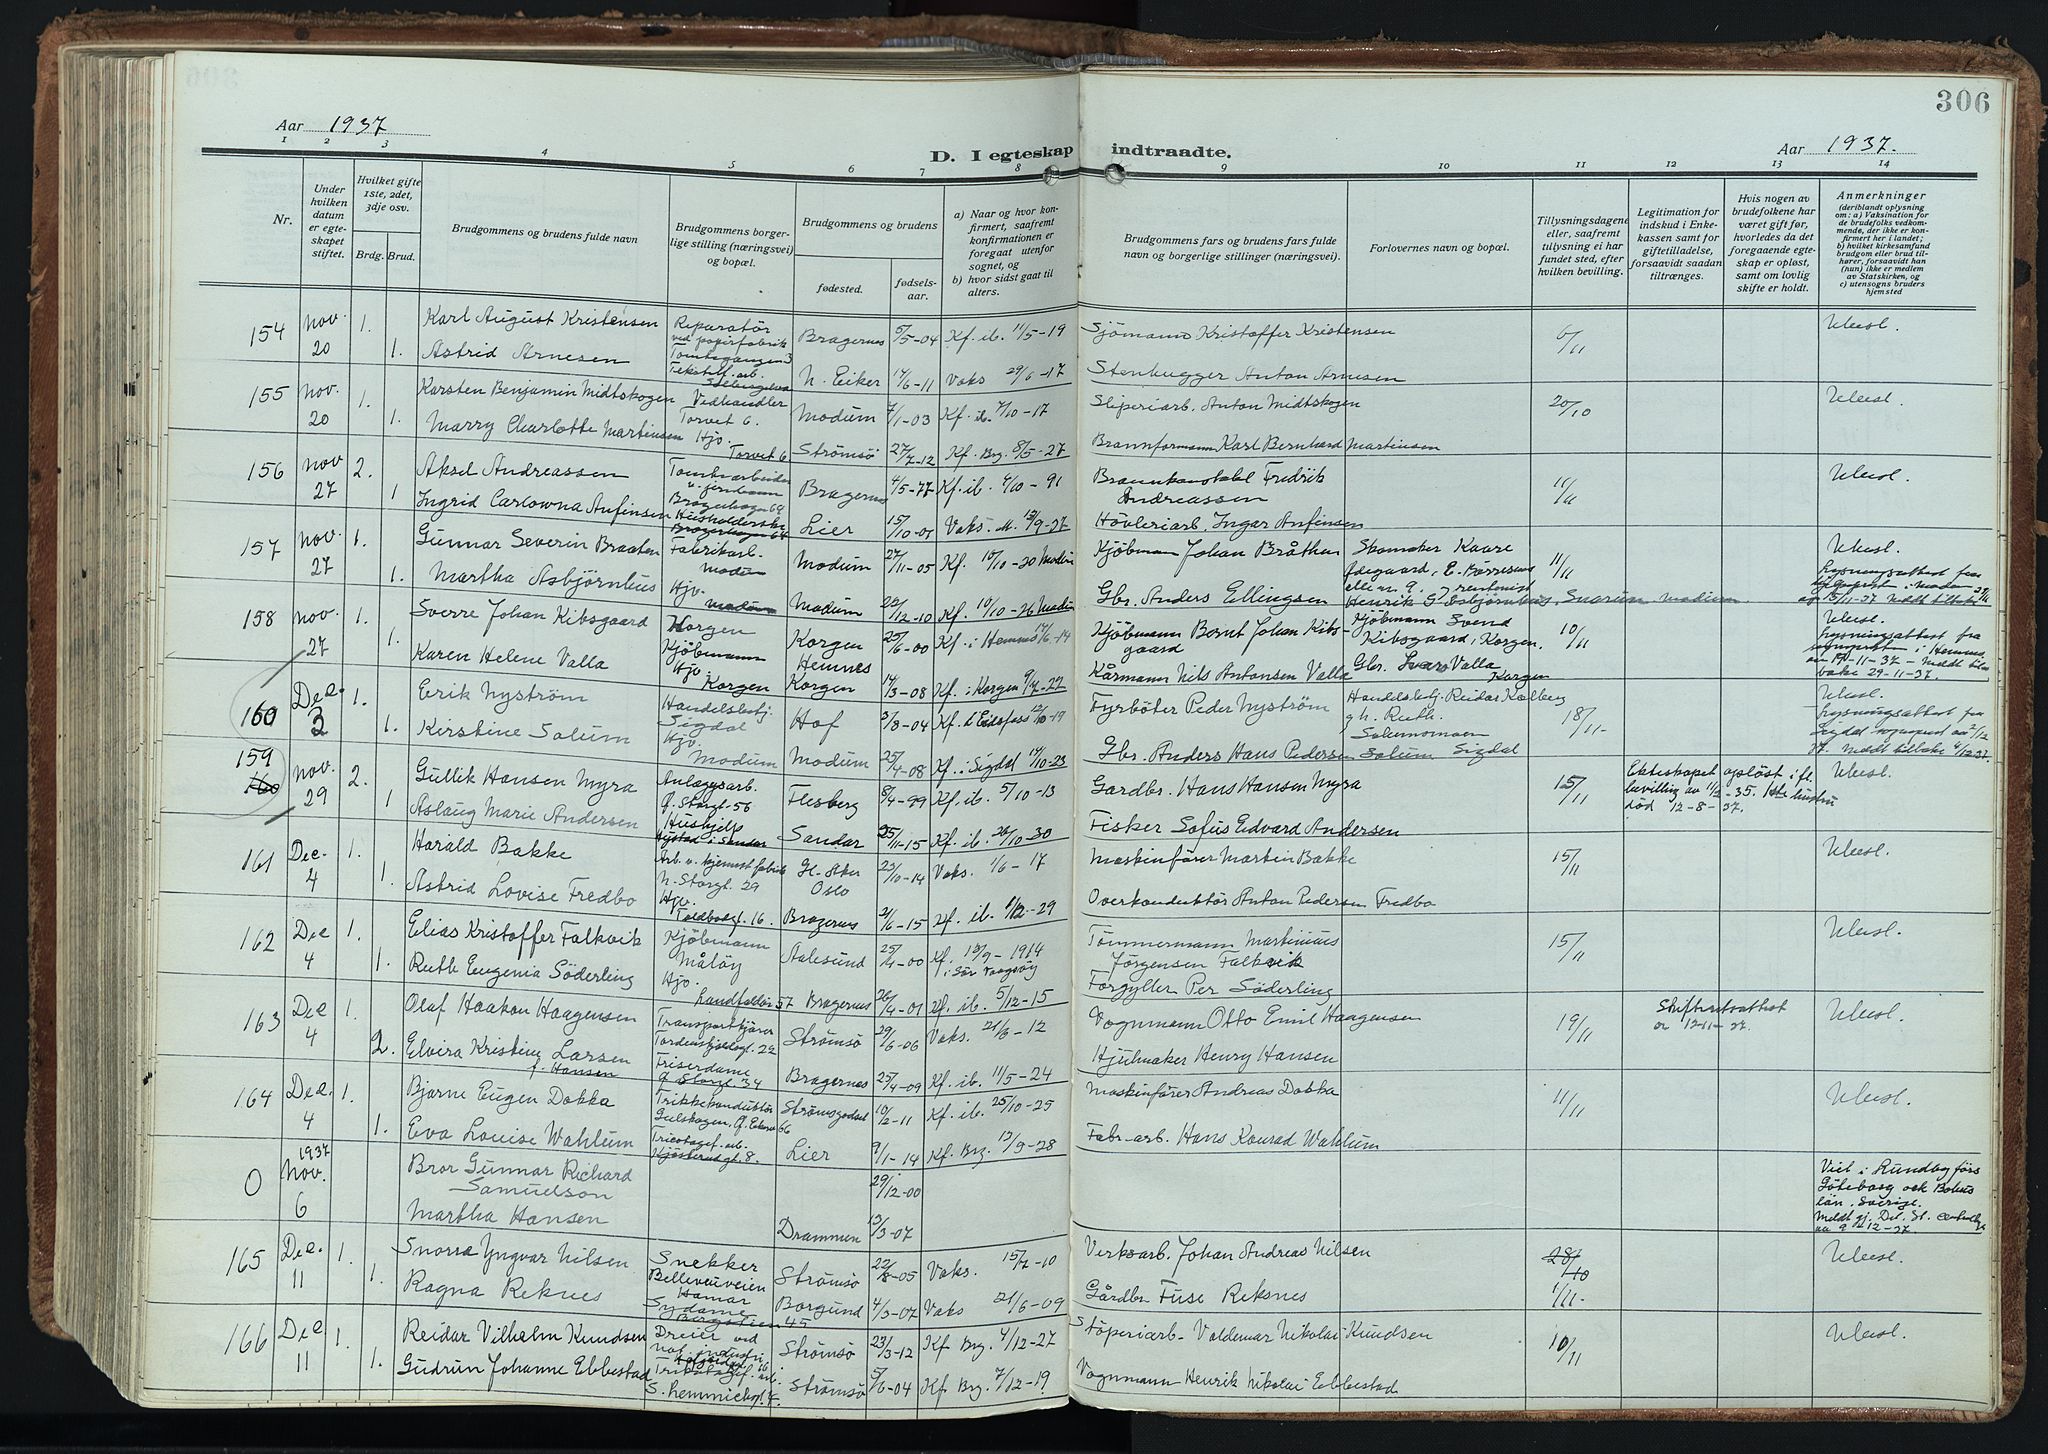 306
Aar 1937
Aar 1937.
D. I egteskap indtraadte.
1 2 3 4 5 6 7 8 9 10 11 12 13 14
Nr.
Under hvilken datum er egteskapet stiftet.
Hvilket gifte 1ste, 2det, 3dje osv.
Brdg. Brud.
Brudgommens og brudens fulde navn
Brudgommens borgerlige stilling (næringsvei) og bopæl.
Brudgommens og brudens
fødested.
fødselsaar.
a) Naar og hvor konfirmert, saafremt konfirmationen er foregaat utenfor sognet, og
b) hvor sidst gaat til alters.
Brudgommens fars og brudens fars fulde navn og borgerlige stillinger (næringsvei).
Forlovernes navn og bopæl.
Tillysningsdagene eller, saafremt tillysning ei har fundet sted, efter hvilken bevilling.
Legitimation for indskud i Enkekassen samt for giftetilladelse, forsaavidt saadan tiltrænges.
Hvis nogen av brudefolkene har været gift før, hvorledes da det foregaaende egteskap er opløst, samt om lovlig skifte er holdt.
Anmerkninger
(deriblandt oplysning om: a) Vaksination for de brudefolks vedkommende, der ikke er konfirmert her i landet; b) hvilket kirkesamfund brudgom eller brud tilhører, forsaavidt han (hun) ikke er medlem av Statskirken, og c) utensogns bruders hjemsted
154 Nov. 20 1. Karl August Kristensen Reparatør ved papirfabrik Bragernes 5/5-04 Kf. ib. 11/5-19 Sjömann Kristoffer Kristensen 6/11
1. Astrid Arnesen Tekstilf. arb. N. Eiker 17/6-11 Vaks 29/6-17 Stenhugger Anton Arnesen
155 Nov. 20 1. Karsten Benjamin Midtskogen Vedhandler Torvet 6. Modum 7/1-03 Kf. ib. 7/10-17 Sliperiarb. Anton Midtskogen 20/10
1. Marry Charlotte Martinsen Hjv. Torvet 6 Strömsö 27/7-12 Kf. Brg. 8/5-27 Brannformann Karl Bernhard Martinsen
156 Nov 27 2. Aksel Andreassen Tomtearbeider Bragernes 4/5-77 Kf. ib. 4/10-91 Brannkonstabel Fredrik Andreassen 11/11
1 Ingrid Carlowna Anfinsen Husholderske Lier 15/10-01 Vaks. M. 13/9-27 Hövleriarb. Ingar Anfinsen
157 Nov. 27 1. Gunnar Severin Braaten Fabrikarb. Modum Modum 27/11-05 Kf. 10/10-20 Modum Kjöbmann Johan Bråthen Skomaker Kaare 11/11
1. Martha Asbjørnhus Hjv. Modum Modum 22/12-10 Kf. 10/10-26 Modum Gbr. Anders Ellingsen Snarum Modum
158 Nov. 27 1. Sverre Johan Kibsgaard Korgen Kjöbmann Korgen Hemnes 25/6-00 Kf. i Hemnes 17/6-14 Kjöbmann Bernt Johan Kibsgaard Kjöbmann Svend Kibsgaard, Korgen. 10/11
1. Karen Helene Valla Hjv. Korgen Korgen 14/3-08 Kf. i Korgen 9/7-22 Kårmann Nils Antonsen Valla Gbr. Ivar Valla Korgen
160 Dec. 3 1. Erik Nyström Handelsbetj. Sigdal Hof 3/8-04 Fyrböter Peder Nyström Handelsbetj. Reidar Kolberg 18/11
1. Kirstine Solum Hjv. Modum Modum 25/4-08 Kf. i Sigdal 14/10-23 Gbr. Anders Hans Pedersen Solum Sigdal
159 Nov. 29 2. Gullik Hansen Myra Anlægsarb. Flesberg 8/4-99 Kf. ib. 5/10-13 Gardbr. Hans Hansen Myra 15/11 Ekteskapet opløst i fl. bevilling av 11/2-35. død 12-8-37. Ubesl.
1 Aslaug Marie Andersen Hushjelp Sandar 25/11-15 Kf. ib. 26/10-30 Fisker Sofus Edvard Andersen
161 Dec. 4 1. Harald Bakke N. Storgt. 29 Gl. Aker Oslo 23/10-14 Vaks. 1/6-17 Maskinfører Martin Bakke 15/11 Ubesl.
1. Astrid Lovise Fredbo Hjv. Toldbodgt. 16. Bragernes 21/6-15 Kf. ib. 1/12-29 Overkonduktör Anton Pedersen Fredbo
162 Dec 4 1. Elias Kristoffer Falkvik Kjöbmann Måløy Aalesund 25/4-00 Kf. 13/9-1914 i Sör Vaagsöy Tömmermann Martinius Jørgensen Falkvik 15/11 Ubesl.
1. Ruth Eugenia Söderling Hjv. Landfaldöi 57 Bragernes 26/4-01 Kf. ib. 5/12-15 Forgyller Per Söderling
163 Dec 4 1. Olaf Haakon Haagensen Transportkjører Tordenskjoldsgt. 22 Strömsö 29/6-06 Vaks. 21/6-12 Vognmann Otto Emil Haagensen 19/11 Skifteretsattest av 12-11-37. Ubesl.
2. Elvira Kristine Larsen f. Hansen Friserdame G. Storgt. 34 Bragernes 25/4-09 Kf. ib. 11/5-24 Hjulmaker Henry Hansen
164 Dec. 4 1. Bjarne Eugen Dokka Trikkekonduktör Strömsgodset 10/2-11 Kf. ib. 25/10-25 Maskinfører Andreas Dokka 11/11 Ubesl.
1. Eva Louise Wahlum Tricotagef. arb. Lier 9/1-14 Kf. Brg. 13/9-28 Fabr-arb. Hans Konrad Wahlum
0 1937 Nov. 6 Bror Gunnar Richard Samuelson 29/12-00 Viet i Lundby förs. Göteborg och Bohus län, Sverige.
Martha Hansen Drammen 13/3-07
165 Dec. 11 1. Snorra Yngvar Nilsen Snekker Bellevueveien Hamar Strömsö 22/8-05 Vaks. 15/7-10 Verksarb. Johan Andreas Nilsen 28/10 Ubesl.
1. Ragna Reknes Sydame Borgund 4/3-07 Vaks 21/6-09 Gårdbr. Fuse Reksnes 1/11-
166 Dec 11 1. Reidar Vilhelm Knudsen Dreier ved Strömsö 23/3-12 Kf. Brg. 4/12-27 Stöperiarb. Valdemar Nikolai Knudsen 10/11 Ubesl.
1. Gudrun Johanne Ebbestad Strömsö 5/6-04 Kf. Brg. 7/12-19 Vognmann Henrik Nikolai Ebbestad